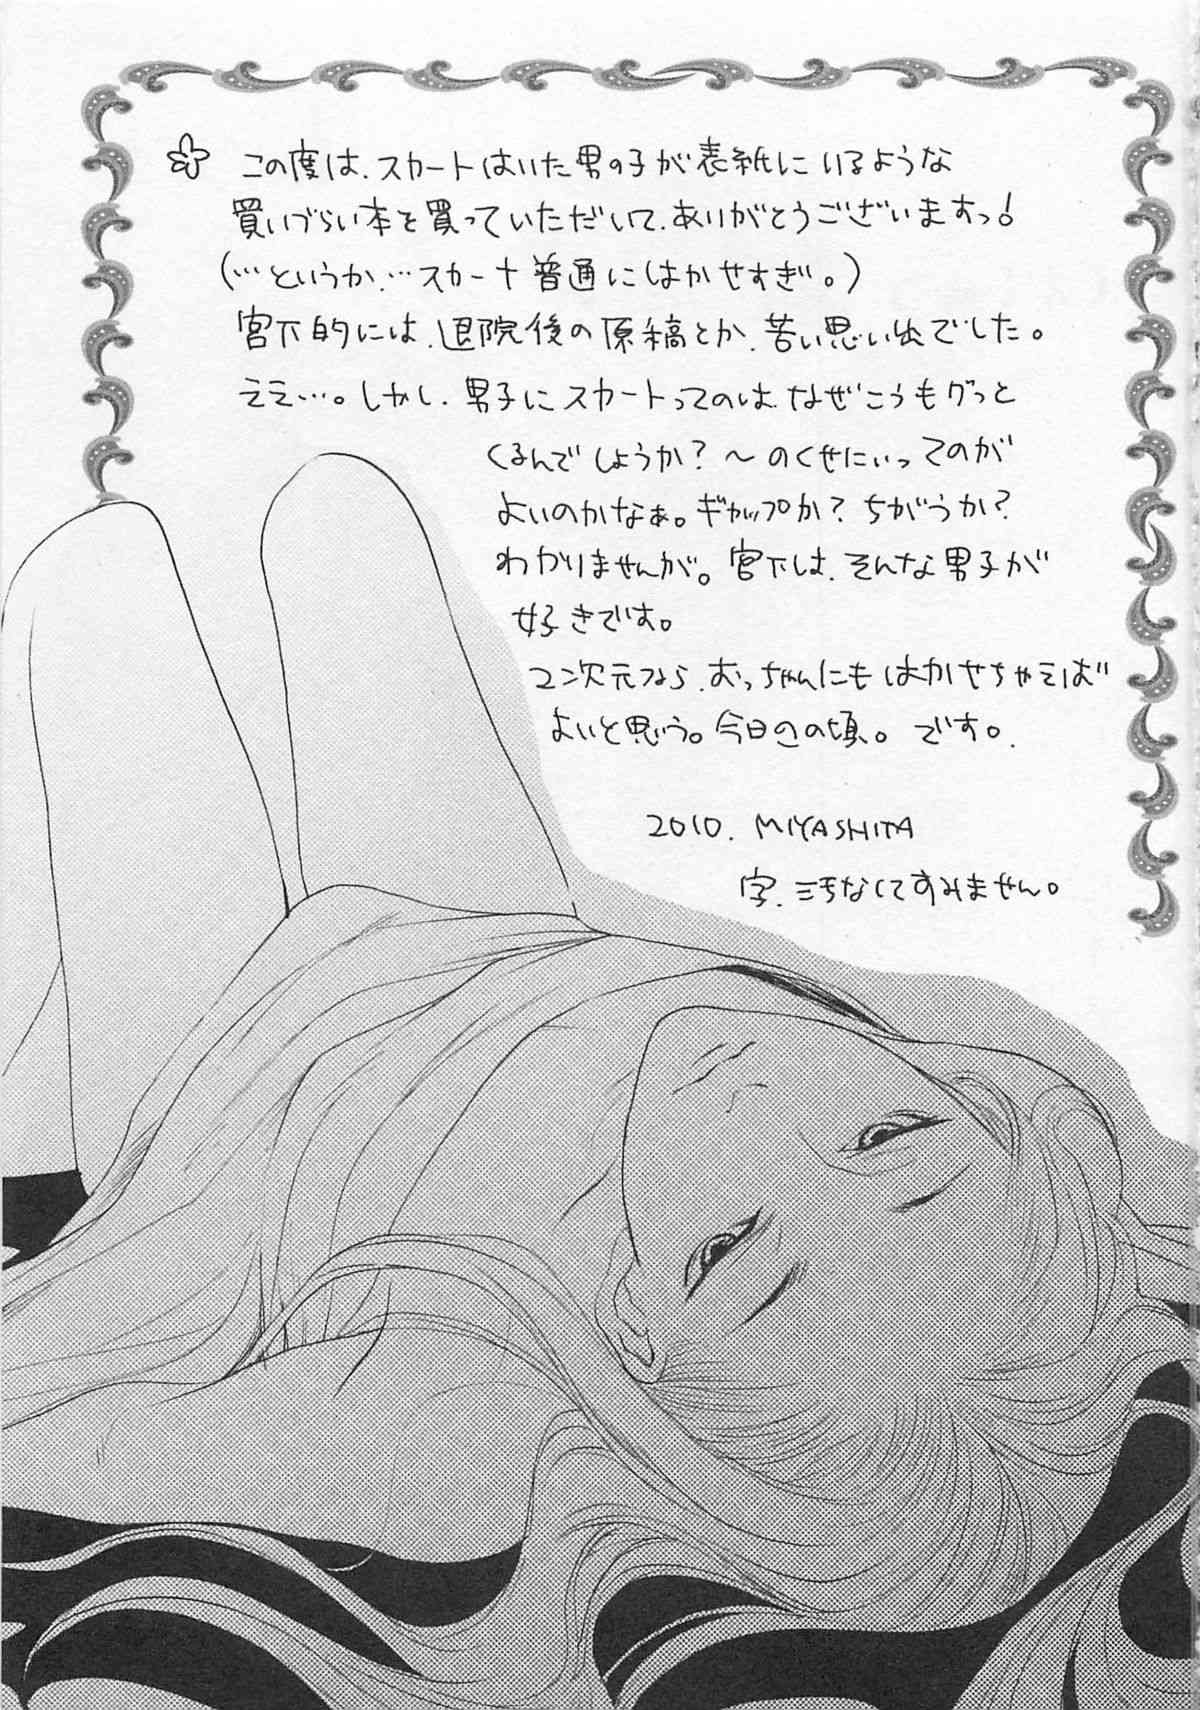 この度は、スカートはいた男の子が表紙にいるような
買いづらい本を買っていただいて、ありがとうございますっ!
(…というか、…スカート普通にはかせすぎ。)
宮下的には、退院後の原稿とか、苦い思い出でした。
ええ…。しかし、男子にスカートってのは、なぜこうもグッと
くるんでしょうか?〜のくせにぃってのが
よいのかなぁ。ギャップか?ちがうか?
わかりませんが。宮下は、そんな男子が
好きです。
2次元なら、おっちゃんにもはかせちゃえば
よいと思う。今日この頃。です。
2010. MIYASHITA
字、きちゃなくてすみません。